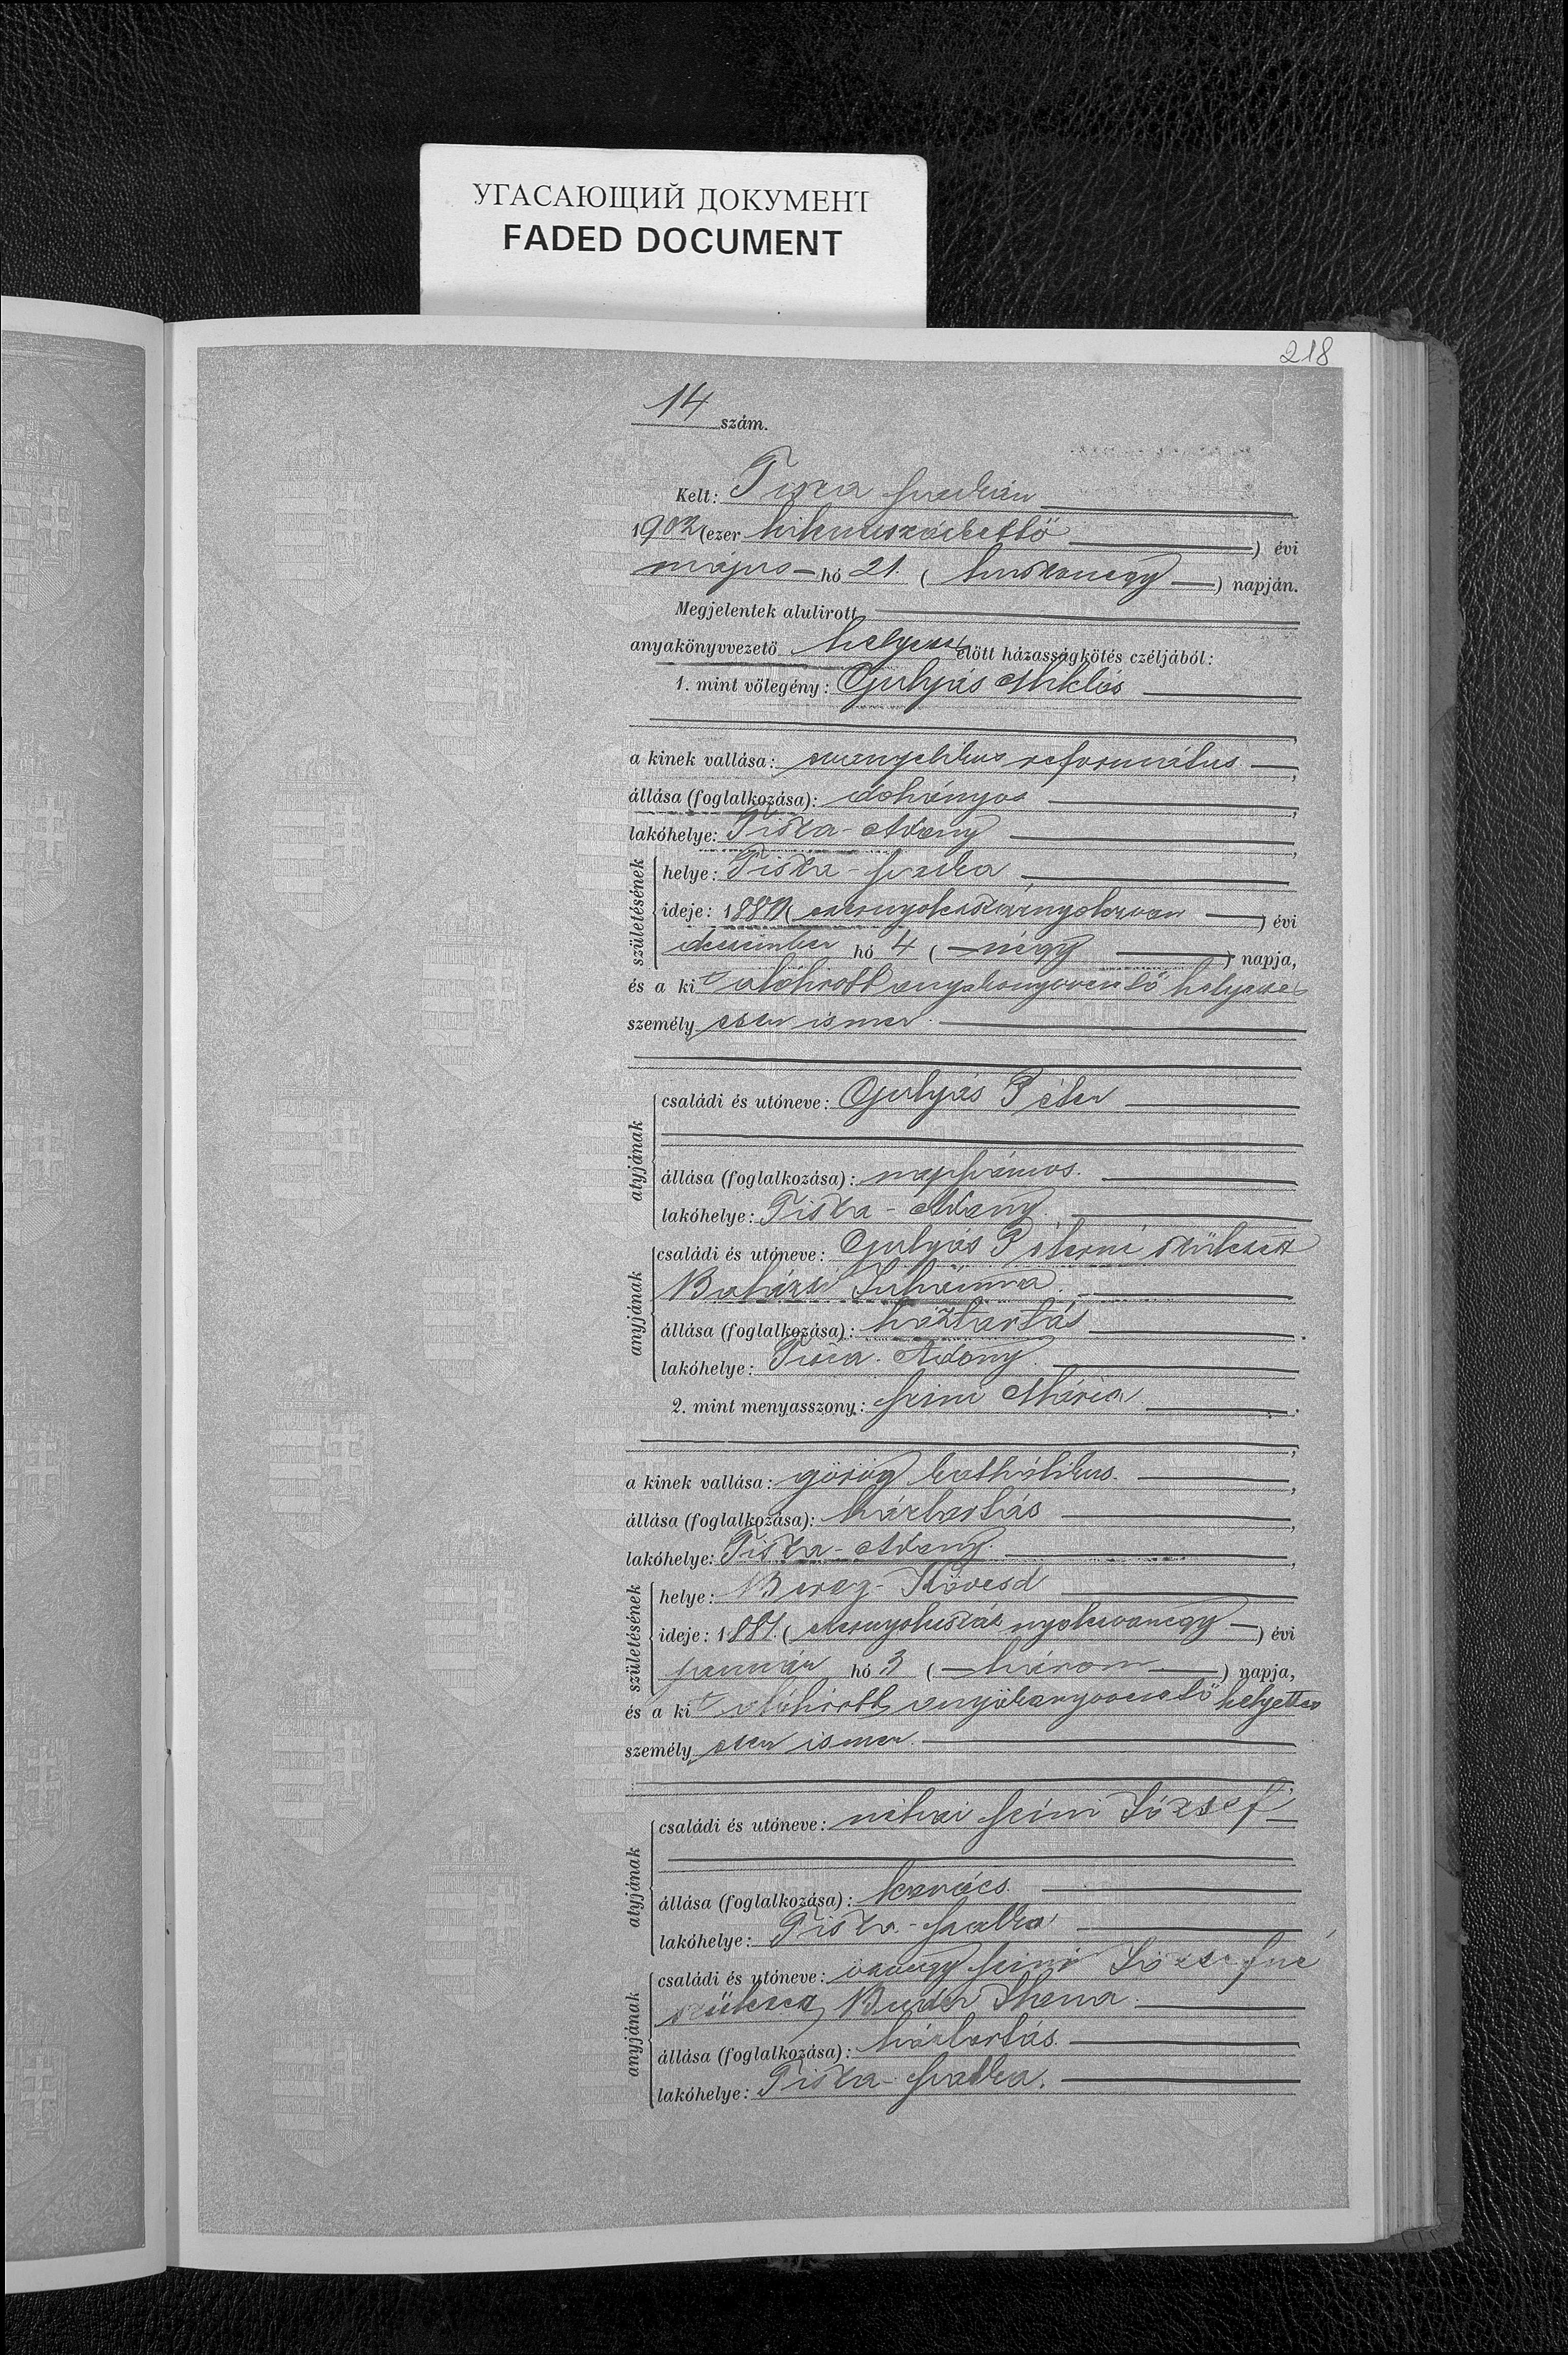 УГАСАЮЩИЙ ДОКУМЕНТ
FADED DOCUMENT
218
14 szám.
Kelt: Tisza
1902 (ezer kilencszázkettő) évi
május hó 21. (huszonegy) napján.
Megjelentek alulirott
anyakönyvvezető helyettes előtt házasságkötés czéljából:
1. mint vőlegény: Gulyás Miklós
a kinek vallása: evangelikus református,
állása (foglalkozása): dohányos,
lakóhelye: Tisza-Adony,
születésének
helye: Tisza-Szalka
ideje: 1880 (ezernyolcszáznyolczvan) évi
deczember hó 4 (négy) napja,
és a kit alólirott anyakönyvvezető helyettes
személyesen ismer.
atyjának
családi és utóneve: Gulyás Péter
állása (foglalkozása): napszámos.
lakóhelye: Tisza-Adony
anyjának
családi és utóneve: Gulyás Péterné született
Balázs Juliánna
állása (foglalkozása): háztartás
lakóhelye: Tisza-Adony
2. mint menyasszony: Szini Mária
a kinek vallása: görög katholikus,
állása (foglalkozása): háztartás,
lakóhelye: Tisza-Adony,
születésének
helye: Bereg-Kövesd
ideje: 1881. (ezernyolcszáz nyolczvanegy) évi
január hó 3 (három) napja,
és a kit alólirott anyakönyvvezető helyettes
személyesen ismer.
atyjának
családi és utóneve: néhai Szini József
állása (foglalkozása): kovács.
lakóhelye: Tisza-Szalka
anyjának
családi és utóneve: özvegy Szini Józsefné
született Ilona
állása (foglalkozása): háztartás.
lakóhelye: Tisza-Szalka.